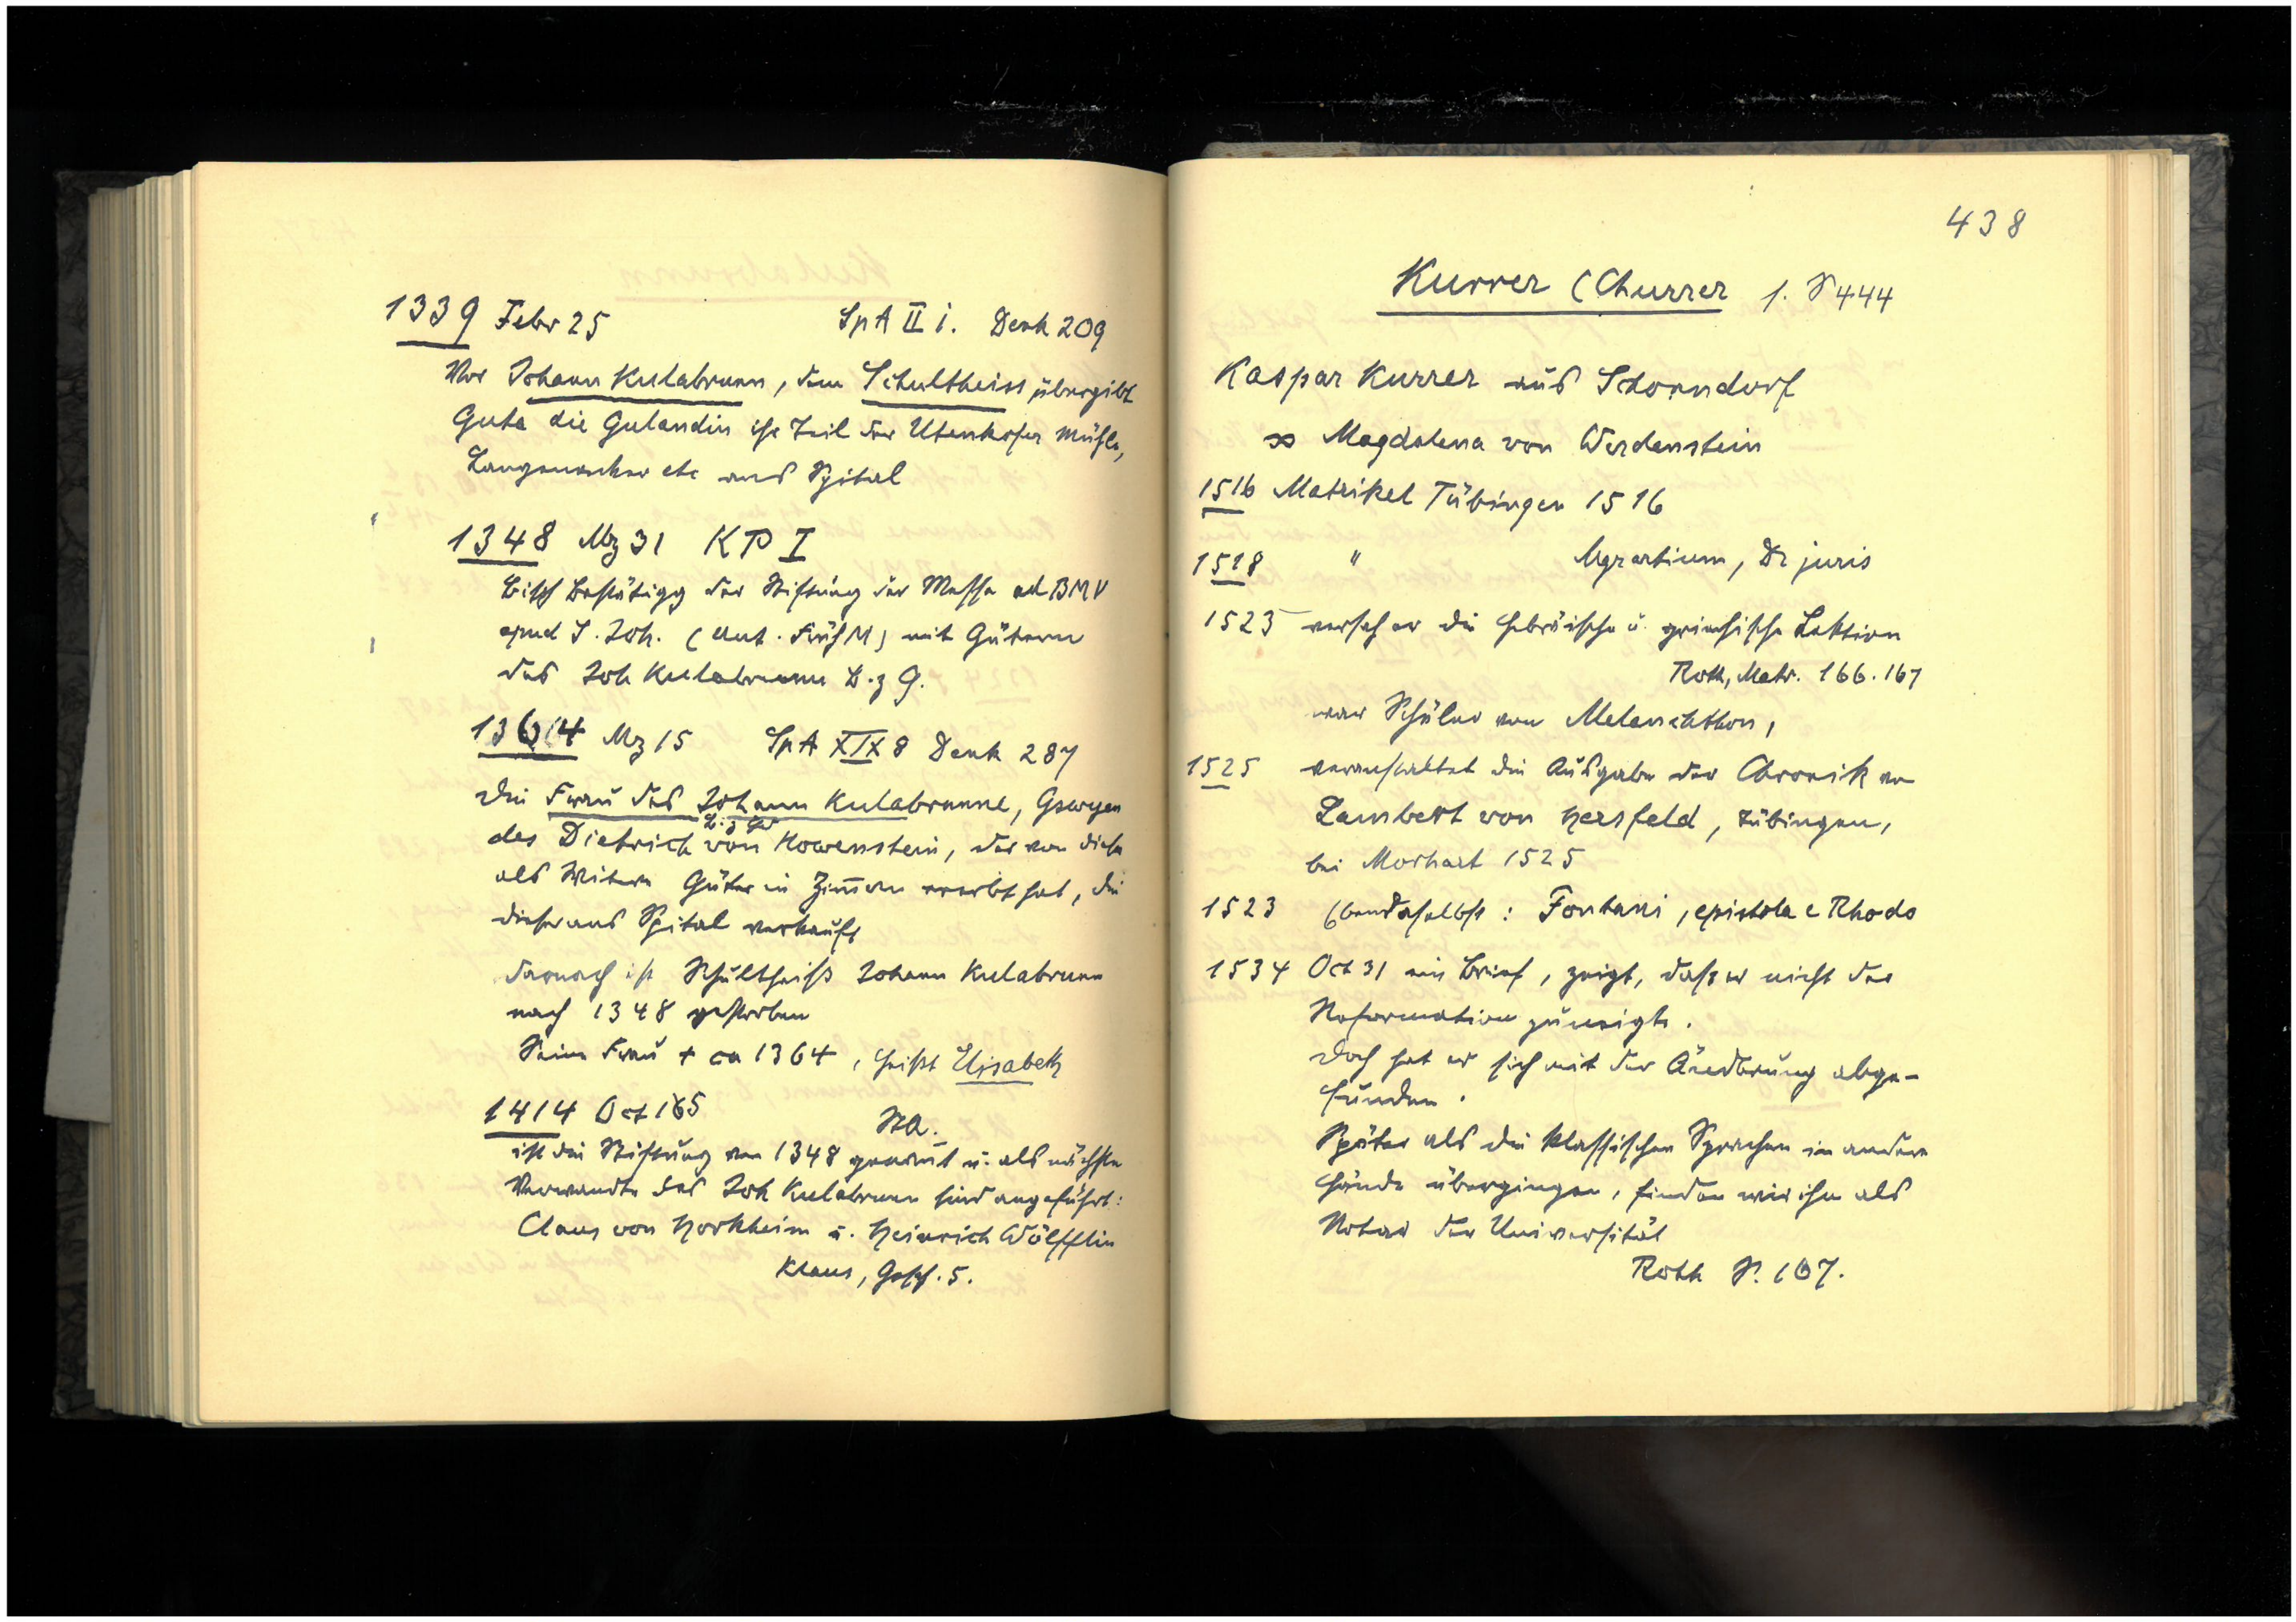 1339 Febr 25 SpA II i. Denk 209
Vor Johann Kulabrunn, dem Schultheiss übergibt
Guta die Gulandin ihr Teil der Utenhofer Mühle,
Langenacker etc ans Spital
1348 Mz 31 KP I
Bisch Bestätigg der Stiftung der Messe ad BMV
apud S. Joh. (Ant. Früh M) mit Gütern
des Joh Kulabrunn B. z G.
1364 Mz 15 SpA XIX 8 Denk 287
Die Frau des Johann Kulabrunne, Gswyen
B. z Gd
des Dietrich von Howenstein, der von dieser
als Witwe Güter in Zim̅ern ererbt hat, die
dieser ans Spital verkauft
darnach ist Schultheiß Johann Kulabrunn
nach 1348 gestorben
Seine Frau + ca 1364, heißt Elisabeth
1414 Oct 165 StA.
ist die Stiftung von 1348 genannt u. als nächste
Verwandte des Joh Kulabrunn sind angeführt:
Claus von Horkheim u. Heinrich Wölfflin
Klaus, Gesch. 5.
438
Kurrer (Churrer s. S 444
Kaspar Kurrer aus Schorndorf
∞ Magdalena von Werdenstein
1516 Matrikel Tübingen 1516
1518 " Mgr artium, Dr juris
1523 versah er die hebräische u. griechische Lektion
Roth, Matr. 166. 167
war Schüler von Melanchthon,
1525 veranstaltet die Ausgabe der Chronik von
Lambert von Hersfeld, Tübingen,
bei Morhart 1525
1523 Ebendaselbst: Fontani, epistola e Rhodo
1534 Oct 31 ein Brief, zeigt, daß er nicht der
Reformation zuneigte.
Doch hat er sich mit der Änderung abge-
funden.
Später als die klassischen Sprachen in andere
Hände übergingen, finden wir ihn als
Notar der Universität
Roth S. 167.